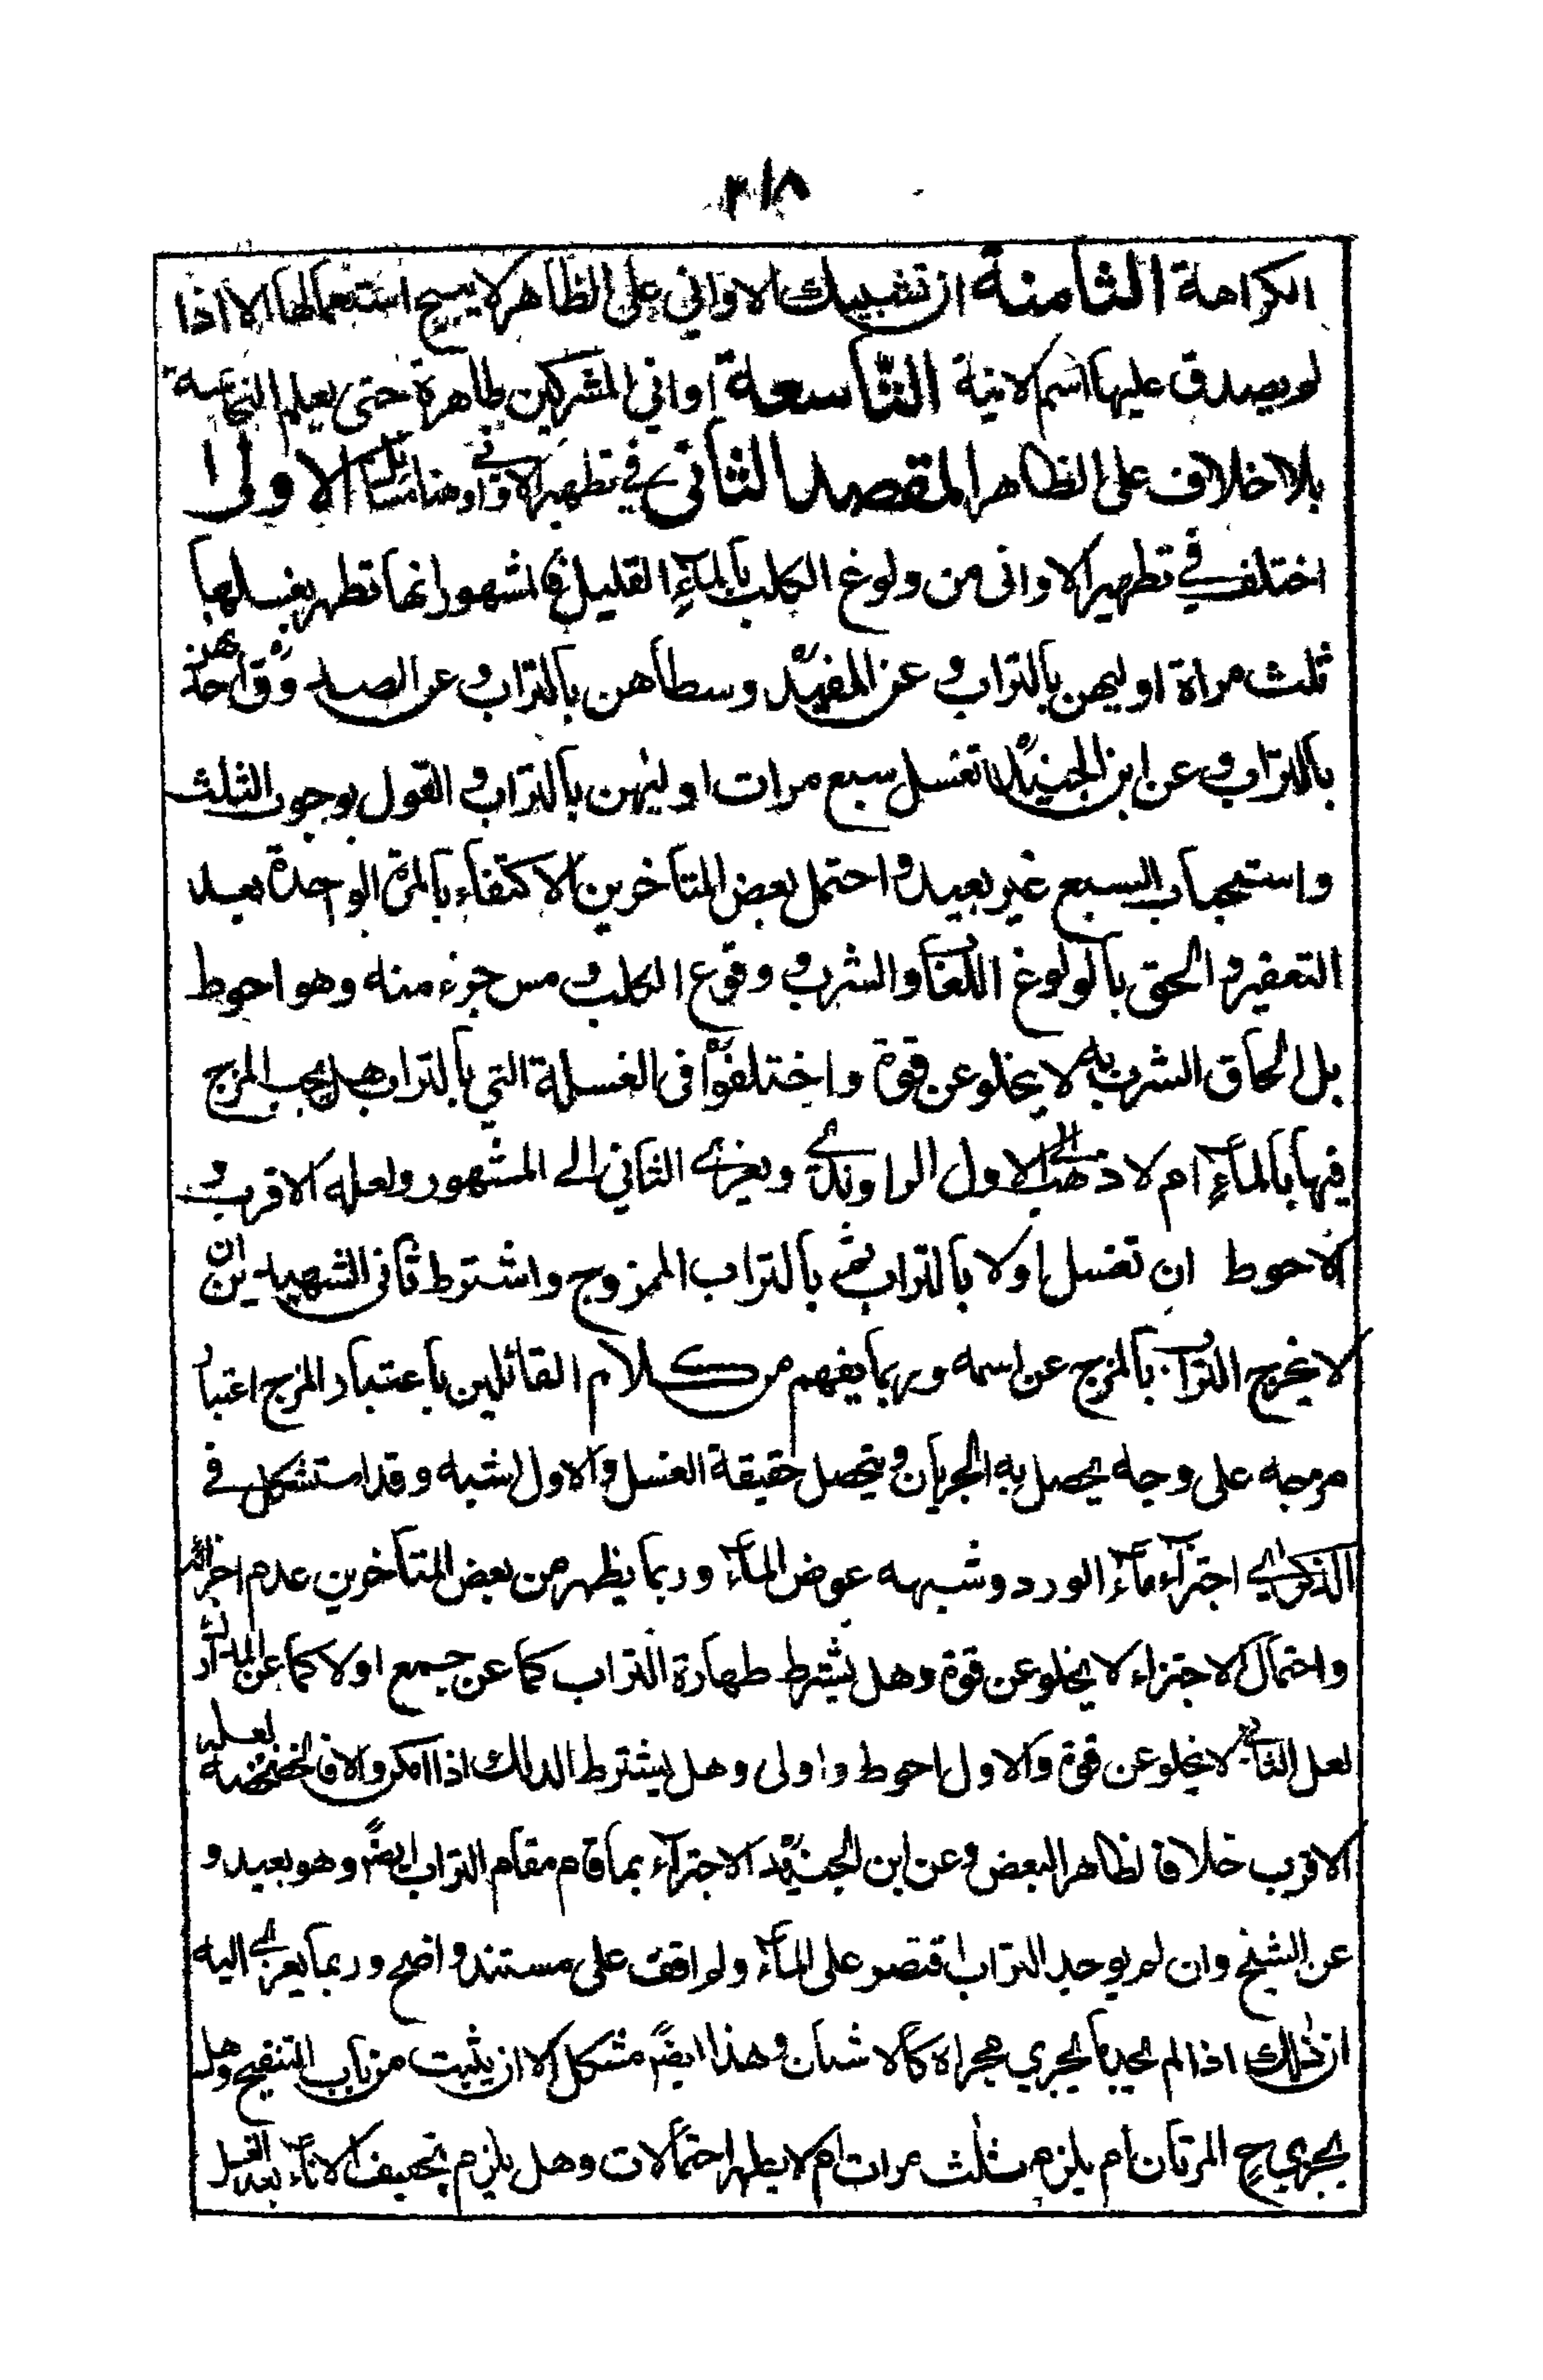 ۲۱۸
الكراهة الثامنة ان تشبيك الاواني على الظاهر لا يبيح استعمالها الا اذا
لم يصدق عليها اسم الانية التاسعة اواني المشركين طاهرة حتى يعلم النجاسة
بلا خلاف على الظاهر المقصد الثاني في تطهير الاواني وهنا مسائل الاولى
اختلف في تطهير الاواني من ولوغ الكلب بالماء القليل فالمشهور انها تطهر بغسلها
ثلث مراة اوليهن بالتراب وعن المفيد وسطاهن بالتراب وعن الصدوق احدهن
بالتراب وعن ابن الجنيد تغسل سبع مرات اوليهن بالتراب والقول بوجوب الثلث
واستحباب السبع غير بعيد واحتمل بعض المتأخرين الاكتفاء بالمرة الواحدة بعد
التعفير والحق بالولوغ اللعاب والشرب ووقوع الكلب ومس جزء منه وهو احوط
بل الحاق الشرب به لا يخلو عن قوة واختلفوا في الغسلة التي بالتراب هل يجب المزج
فيها بالماء ام لا ذهب الى الاول الراوندي ويعزى الثاني الى المشهور ولعله الاقرب و
الاحوط ان تغسل اولا بالتراب ثم بالتراب الممزوج واشترط ثاني الشهيدين ان
لا يخرج التراب بالمزج عن اسمه وربما يفهم من كلام القائلين باعتبار المزج اعتبار
مزجه على وجه يحصل به الجريان ويتحصل حقيقة الغسل والاول اشبه وقد استشكل في
الذكرى اجتزاء ماء الورد وشبهه عوض الماء وربما يظهر من بعض المتأخرين عدم اجزائه
واحتمال الاجتزاء لا يخلو عن قوة وهل يشترط طهارة التراب كما عن جمع اولا كما عن المدارك
لعل الثاني لا يخلو عن قوة والاول احوط واولى وهل يشترط الدلك اذا امكن والا فالخضخضة لعله
الاقرب خلافا لظاهر البعض وعن ابن الجنيد الاجتزاء بما قام مقام التراب ايضً وهو بعيد و
عن الشيخ وان لم يوجد التراب اقتصر على الماء ولم اقف على مستند واضح وربما يعزى اليه
ان ذلك اذا لم يجد ما يجري مجراه كالاشنان وهذا ايضً مشكل الا ان يثبت من باب التنقيح وهل
يجزي ح المرتان ام يلزم ثلث مرات ام لا يطهر احتمالات وهل يلزم تجفيف الاناء بعد الغسل